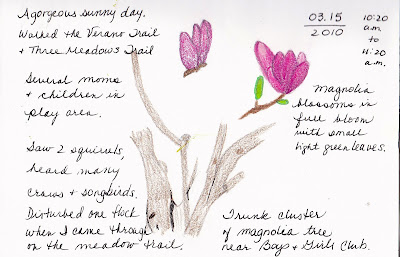 A gorgeous sunny day.
Walked the Verano Trail
+ Three Meadows Trail
Several moms
+ children in
play area.
Saw 2 squirrels,
heard many
crows + songbirds.
Disturbed one flock
when I came through
on the meadow trail.
03.15
2010
10:20
a.m.
to
11:20
a.m.
magnolia
blossoms in
full bloom
with small
light green leaves.
Trunk cluster
of magnolia tree
near Boys + Girls Club.